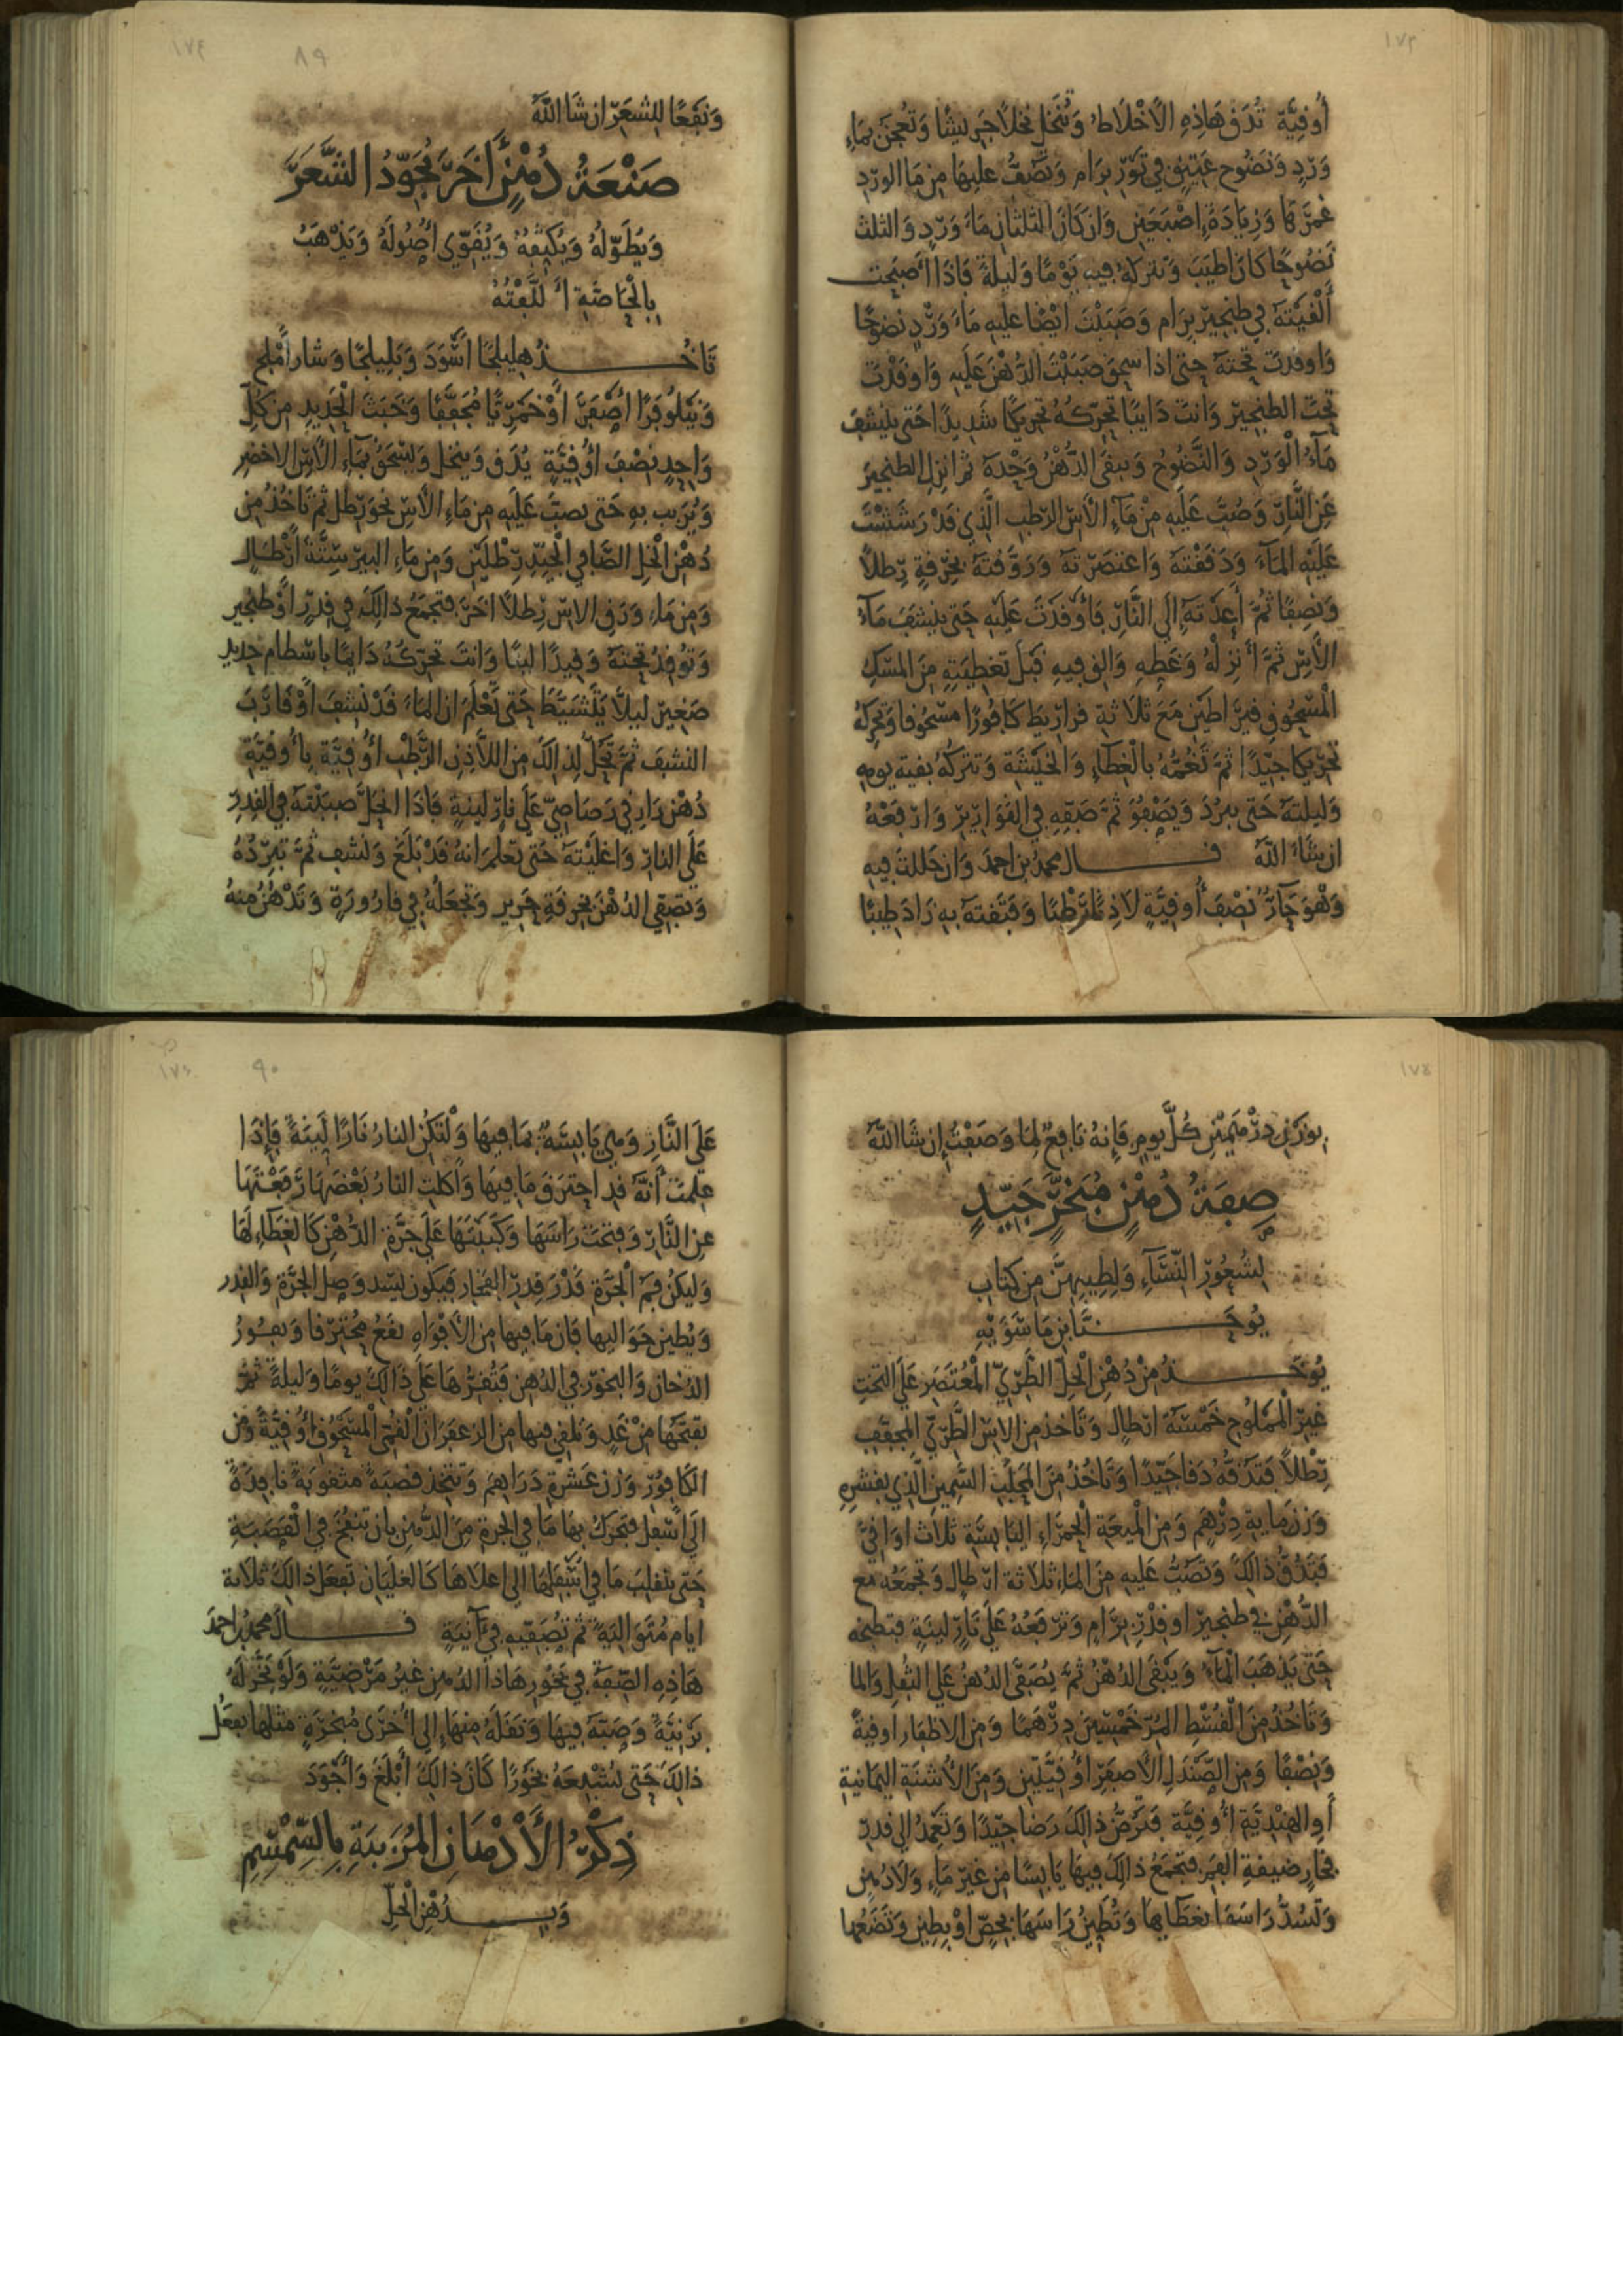 ١٧٣
أُوقِيَّة تُدَق هَاذِهِ الأَخْلَاطُ وَتُنْخَل نخلاً جَرِيشًا وَتُعجَن بمَاءِ
وَرْدٍ وَنَضُوح عَتِيْقٍ في تَوْرِ بِرَام وَتَصُبُّ عليهَا مِن مَا الورْدِ
غمرَها وَزِيَادَةَ إِصْبَعَيْنِ وَان كَانَ الثلثانِ مَاءَ وَرْدٍ وَالثلث
نَضُوحًا كَانَ اطيَبَ وَتتركهُ فِيهِ يَوْمًا وَليلةً فَاذَا أَصبَحت
أَلْقَيْتَهُ في طِنجِيْرِ بِرَام وَصَبَبْتَ ايْضًا عليهِ مَاءَ وَرْدٍ نَضوحًا
وَاوقدتَ تحْتَهُ حتى اذا سخن صَبَبْتَ الدُّهْنَ عَلَيهِ وَاوقَدْتَ
تَحْتَ الطنجِيْرِ وَانتَ دَايبًا تحَرّكهُ تحريكًا شَدِيدًا حَتى ينشفَ
مَآءُ الْوَرْدِ وَالنَّضُوحُ وَيبقَى الدُّهْنُ وَحْدَهُ ثم انزلِ الطنجِيرَ
عَنِ النَّارِ وَصُبَّ عَلَيهِ مِنْ مَآءِ الْآسِ الرّطبِ الَّذِي قَدْ رَشَشْتَ
عَلَيْهِ الْمَآءَ وَدَقَقْتَهُ وَاعتصَرْتَهُ وَرَوَّقْتَهُ بخِرْقةٍ رِطلاً
وَنِصفًا ثُمَّ أَعِدْتَهُ إِلَى النَّارِ فَأَوْقَدْتَ عَلَيْهِ حَتى ينشَفَ مَآءُ
الآسِ ثمَّ أَنزِلْهُ وَغَطِّهِ وَالقِ فِيهِ قَبْلَ تَغْطِيَتِهِ مِنَ المسْكِ
الْمَسْحُوقِ قيرَاطَينِ مَعَ ثلاثةِ قراريط كَافُورًا مَسْحُوقا وَتحركهُ
تحْرِيكا جَيِّدًا ثمَّ تَغُمُّهُ بالْغِطَآءِ وَالخَيْشَةِ وَتتركُهُ بَقية يومِهِ
وَليلتَهُ حَتى يبرُدَ وَيَصْفُوَ ثمَّ صَفِّهِ في القَوَارِيْرِ وَارْفَعْهُ
ان شَاءَ اللّهُ قــال محمد بن احمد وَان حَللتَ فِيهِ
وَهْوَ حَآرٌّ نِصْفَ أُوقِيَّةٍ لَاذِنًا رَطْبًا وَفَتَقتَهُ بِهِ زَادَ طِيْبًا
١٧٤
٨٩
وَنَفْعًا لِلشعَرِ ان شَا اللّهُ
صَنْعَةُ دُهْنٍ أَخَرَ يُجَوِّدُ الشَّعَرَ
وَيُطَوِّلُهُ وَيُكَثِّفُهُ وَيُقَوِّي أُصُولَهُ وَيَذْهَبُ
بِالْحَاصَّةِ
تَاخُـــذُ هلِيلَجًا اَسْوَدَ وَبَلِيلَجًا وَشار أَمْلَجٍ
وَنَيْلُوفَرًا أَصْفَرَ أَوْ خَمْرِيًّا مُجَفَّفًا وَخَبَثَ الْحَدِيدِ مِن كلّ
وَاحِدٍ نِصْفَ أُوقِيَّةٍ يُدَق وَينخل وَيسْحَقُ بمَآءِ الْآسِ الاخضرِ
وَيُرَيب بهِ حَتى يصبَّ عَلَيهِ مِن مَاءِ الآسِ نحوَ رِطل ثم تَاخُذُ مِن
دُهْنِ الْخَلِ الصَّافي الْجَيّدِ رِطْلَينِ وَمِن مَاءِ البيرِ سِتَّةَ أَرْطَالٍ
وَمِن مَاءِ وَرَقِ الآسِ رِطلاً اخَرَ فتجمَعُ ذالِكَ في قِدْرٍ أَوْ طنجِيرٍ
وَتُوقِدُ تحْتهُ وَقِيدًا لينًا وَانتَ تحَرّكهُ دَايمًا باسْطامِ حَدِيدٍ
صَغِيرٍ ليلاَّ يَتَشَيَّطَ حَتى تَعْلَمَ ان المَاءَ قَدْ نَشِفَ أَوْ قَارَبَ
النشفَ ثمَّ تَحُلّ لِذالكَ مِن اللاَّذِنِ الرَّطْبِ أُوقِيَّة بِأُوقِيَّةِ
دُهْن رَازِقي رَصَاصِيّ عَلَى نَارٍ لَينةٍ فَاذَا انحَلَّ صببْتَهُ في القِدْرِ
عَلَى النَارِ وَاغلَيْتَهُ حَتى تعْلَمَ انهُ قَدْ بَلَغَ وَنشف ثمَّ تبَرِّدُهُ
وَتصَفّي الدُهْنَ بخِرقَةِ حَرِيرٍ وَتجعَلُهُ في قارُورَةٍ وَتَدْهُنُ مِنهُ
١٧٥
بِوَزْنِ دِرْهَمَيْنِ كُلَّ يوم فَإِنهُ نَافِعٌ لمَا وَصَفْتُ إِن شَا اللّهُ
صِفَةُ دُهْنٍ مُبَخَّرٍ جَيّدٍ
لِشُعُورِ النِّسَآءِ وَلِطِيبِهِنَّ مِن كتابِ
يُوحَـــنَّا بْنِ مَاسَوَيْهِ
يُوخَـــذُ مِنْ دُهْنِ الْحَلِّ الطَّرِيِّ الْمُعْتَصَرِ عَلَى التختِ
غيرِ الْمَمْلُوحِ خَمْسَةُ ارطالٍ وَتَاخذ مِن الآسِ الطَّرِيِّ المجفَّفِ
رِطْلاً فَتَدُقُّهُ دَقا جَيِّدًا وَتَاخُذُ مِنَ الْمَحْلَبِ السَّمِينِ الَّذِي بقِشرِهِ
وَزن مَايةِ دِرْهَمٍ وَمِن الْميعَةِ الْحَمْرَاءِ اليَابسَةِ ثلَاثَ اوَاقيَّ
فَتَدُقُّ ذالكَ وَتَصُبُّ عَلَيهِ مِنَ المَاءِ ثلاثة ارْطالٍ وَتجمَعُه مع
الدُّهْنِ في طنجِيرِ اوْ قِدْرِ بِرَامٍ وَتَرْفَعُهُ عَلَى نَارٍ لينَةٍ فتَطبخه
حَتَّى يَذْهَبَ الْمَآءُ وَيَبْقَى الدُّهْنُ ثمَّ يُصَفَّى الدُهنُ عَلَى الثّفلِ وَالما
وَتَاخُذُ مِنَ الْقُسْطِ المُرِّ خَمْسِينَ دِرْهَمًا وَمِنَ الاظفَارِ اوقيةً
وَنِصْفًا وَمِن الصَّنْدَلِ الأَصفَرِ أُوقِيَّتَيْنِ وَمِنَ الأُشْنَةِ اليَمَانِيةِ
أَو الهِنْدِيَّةِ أُوقِيَّة فَتَرُضُّ ذالِكَ رَضًّا جَيِّدًا وَتَعْمِدُ الى قدرِ
فخَّارٍ ضيقةِ الفَمِ فتَجمَعُ ذالِكَ فِيهَا يَابسًا مِن غيرِ مَاءٍ وَلَا دُهْنٍ
وَتسُدُّ رَاسَهَا بغِطَايِهَا وَتُطَيِّنُ رَاسَهَا بجِصٍّ اوْ بطِينٍ وَتَضَعُهَا
١٧٦
٩٠
عَلَى النَّارِ وَهيَ يَابسَةٌ بمَا فِيهَا وَلْتَكُنِ النارُ نَارًا لَيِّنَةً فَإِذَا
عِلمْتَ أَنَّهُ قد احتَرَقَ مَا فِيهَا وَأَكلتِ النَارُ بَعْضَهَا رَفَعْتَهَا
عنِ النَّارِ وَفتحْتَ رَاسَهَا وَكَبَبْتَهَا عَلَى جَرَّةِ الدُّهْنِ كَالغِطَاءِ لَهَا
وَليكنْ فَمُ الْجَرَّةِ قَدْرَ قِدْرِ الفَخَّارِ فيَكون ليسُد وَصلَ الجَرَّةِ وَالقدرِ
وَيُطين حَوَاليهَا فَان مَا فِيهَا مِن الأَفوَاهِ يقَعُ مُحْتَرقًا وَيفُورُ
الدُخانُ وَالبخورُ في الدُهنِ فَتُقِرُّهَا عَلَى ذَالِكَ يَومًا وَليلةً ثمَّ
تفتَحُهَا مِنْ غَدٍ وَتُلقي فِيهَا مِن الزعفَرَانِ الْقُمِّيّ الْمَسْحُوقِ أُوقِيَّةً وَمِن
الكَافُورِ وَزن عَشْرَةِ دَرَاهِمَ وَتتّخِذ قصَبَةً مثقوبَةً نَافِذَةً
إلَى أَسْفل فتحَرّك بهَا مَا في الجرةِ مِنَ الدُّهْنِ بان تنفُخَ في الْقَصَبَةِ
حَتى ينقلبَ مَا في أَسْفلِهَا الى اعلاهَا كَالغَلَيَانِ تَفعَل ذالكَ ثلاثة
ايام مُتَوَاليَةً ثم تُصَفّيهِ في آنيَةٍ قــال محمدُ بن احمدَ
هَاذِهِ الصِّفَةُ في بَخُورِ هَاذا الدُهْنِ غيرُ مَرْضِيَّةٍ وَلَوْ بَخَّرَ لَهُ
بَرْنِيَّةً وَصَبَّهُ فِيهَا وَنَقَلَهُ مِنهَا إِلى أُخْرَى مُبَخرَةٍ مثلِهَا يفعَل
ذالكَ حَتى يُشْبِعَهُ بَخُورًا كَانَ ذالكَ أَبْلَغَ وَأَجْوَدَ
ذِكْرُ الأَدْهَانِ الْمُرَبَّبَةِ بِالسِّمْسِمِ
وَبِـــدُهْنِ الْحَلِّ